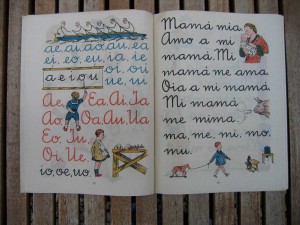 ae. ai. ao. au. ea
ei. eo. eu. ia. ie
a e i o u
oi. ou
ue. ui
Ae, Ea. Ai. Ia
Ao, Oa. Au. Ua
Eo. Iu.
Oi. Ue.
io, oe, uo.
Mamá mía.
Amo a mi
mamá. Mi
mamá me ama.
Oía a mi mamá.
Mi mamá
me mima.
ma, me, mi, mo,
mu.